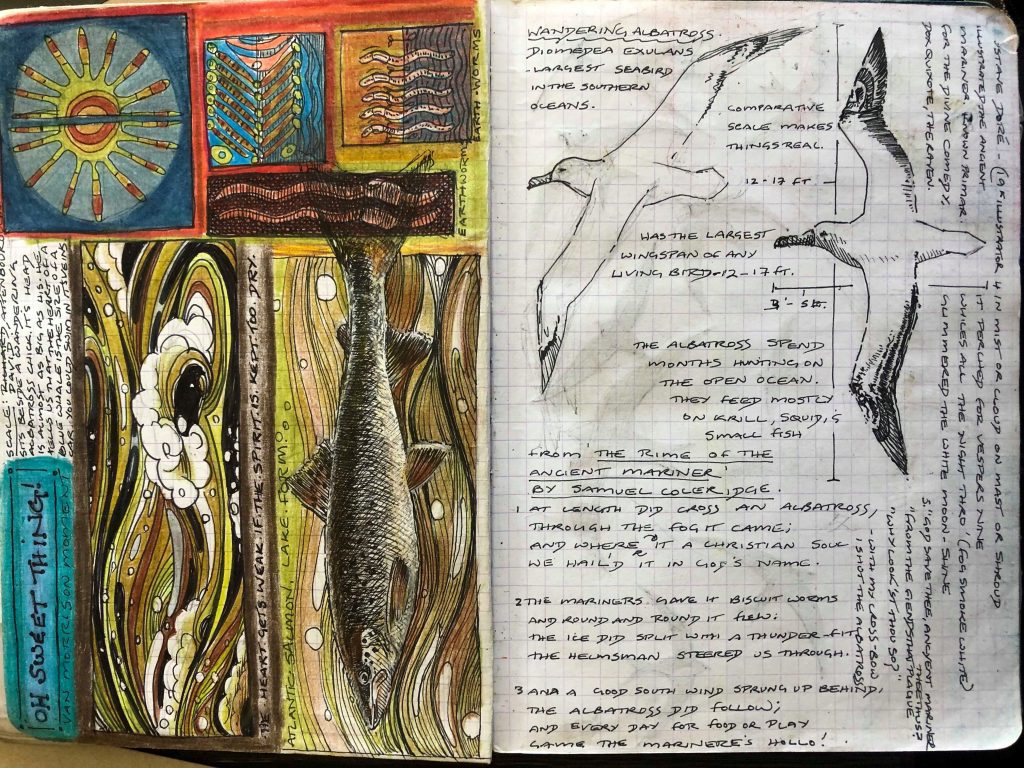 EARTH WORMS
EARTHWORMS
SCALE: RICHARD ATTENBOURO
DAVID
SITS BESIDE A WANDERING
ALBATROSS CHICK. IT'S HEAD
IS ALMOST AS BIG AS HIS. HE
TELLS US THAT THE HEART OF A
BLUE WHALE IS THE SIZE OF A
CAR. YOU COULD SWIM IN ITS VEINS
OH SWEET THING!
VAN MORRISON MOMENT.
THE HEART GETS WEAK IF THE SPIRIT IS KEPT TOO DRY.
ATLANTIC SALMON, LAKE FORM.
WANDERING ALBATROSS.
DIOMEDEA EXULANS
- LARGEST SEABIRD
IN THE SOUTHERN
OCEANS.
COMPARATIVE
SCALE MAKES
THINGS REAL.
12-17 FT.
HAS THE LARGEST
WINGSPAN OF ANY
LIVING BIRD-12-17 FT.
THE ALBATROSS SPEND
MONTHS HUNTING ON
THE OPEN OCEAN.
THEY FEED MOSTLY
ON KRILL, SQUID, &
SMALL FISH
FROM THE RIME OF THE
ANCIENT MARINER'
BY SAMUEL COLERIDGE.
1 AT LENGTH DID CROSS AN ALBATROSS,
THROUGH THE FOG IT CAME;
AND WHERE IT A CHRISTIAN SOUL
WE HAIL'D IT IN GOD'S NAME.
2 THE MARINERS GAVE IT BISCUIT WORMS
AND ROUND AND ROUND IT FLEW:
THE ICE DID SPLIT WITH A THUNDER-FIT
THE HELMSMAN STEERED US THROUGH.
3 ANA A GOOD SOUTH WIND SPRUNG UP BEHIND,
THE ALBATROSS DID FOLLOW;
AND EVERY DAY FOR FOOD OR PLAY
CAME THE MARINERE'S HOLLO!
USTAVE DORÉ - (19 C ILLUSTRATOR
ILLUSTRATED THE ANCIENT
MARINER. KNOWN PRIMAR.
FOR THE DIVINE COMEDY.
DON QUIXOTE, THE RAVEN.
4 IN MIST OR CLOUD ON MAST OR SHROUD
IT PERCHED FOR VESPERS NINE
WHILES ALL THE NIGHT THRO (FOG SMOKE WHITE)
GLIMMERED THE WHITE MOON-SHINE
5. 'GOD SAVE THEE, ANCYENT MARINER
"FROM THE FIENDS THAT PLAGUE
THEE THUS?
"WHY LOOK'ST THOU SO?"
- WITH MY CROSS-BOW
I SHOT THE ALBATROSS!